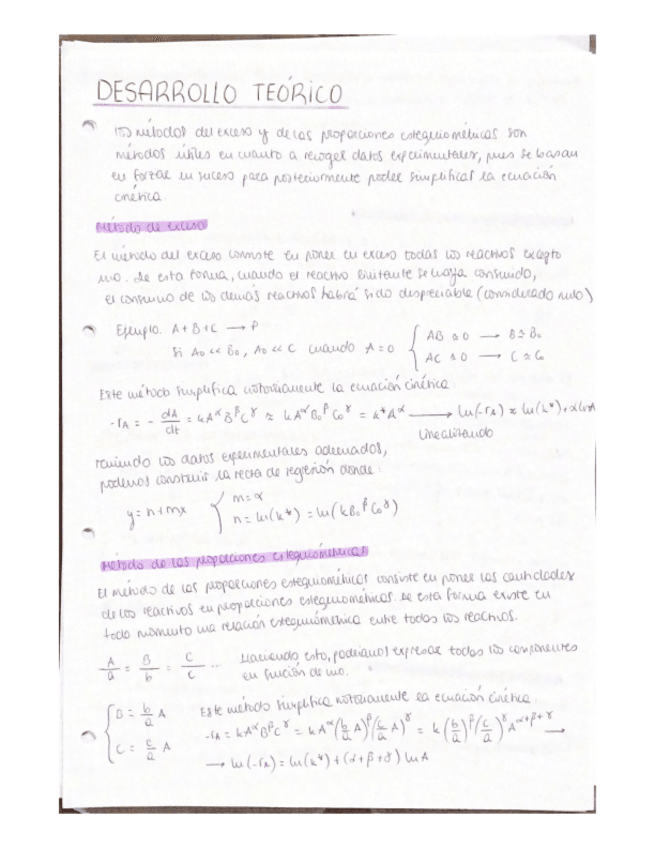 DESARROLLO TEÓRICO
Los métodos del exceso y de las proporciones estequiométricas son
métodos útiles en cuanto a recoger datos experimentales, pues se basan
en forzar un suceso para posteriormente poder simplificar la ecuación
cinética.
Método de exceso
El método del exceso consiste en poner en exceso todas los reactivos excepto
uno. De esta forma, cuando el reactivo limitante se haya consumido,
el consumo de los demás reactivos habrá sido despreciable (considerado nulo)
Ejemplo. A + B + C → P
Si A₀ << B₀, A₀ << C cuando A = 0 { ΔB ≈ 0 → B ≈ B₀
ΔC ≈ 0 → C ≈ C₀
Este método simplifica notoriamente la ecuación cinética.
-rA = - dA/dt = kA^α B^β C^γ ≈ kA^α B₀^β C₀^γ = k*A^α → ln(-rA) ≈ ln(k*) + α ln A
Linealizando
Teniendo los datos experimentales adecuados,
podemos construir la recta de regresión donde:
y = n + mx { m = α
n = ln(k*) = ln(kB₀^β C₀^γ)
Método de las proporciones estequiométricas
El método de las proporciones estequiométricas consiste en poner las cantidades
de los reactivos en proporciones estequiométricas. De esta forma existe en
todo momento una relación estequiométrica entre todos los reactivos.
A/a = B/b = C/c ... Haciendo esto, podríamos expresar todos los componentes
en función de uno.
{ B = b/a A Este método simplifica notoriamente la ecuación cinética.
C = c/a A -rA = kA^α B^β C^γ = kA^α (b/a A)^β (c/a A)^γ = k (b/a)^β (c/a)^γ A^(α+β+γ) →
→ ln(-rA) = ln(k*) + (α+β+γ) ln A